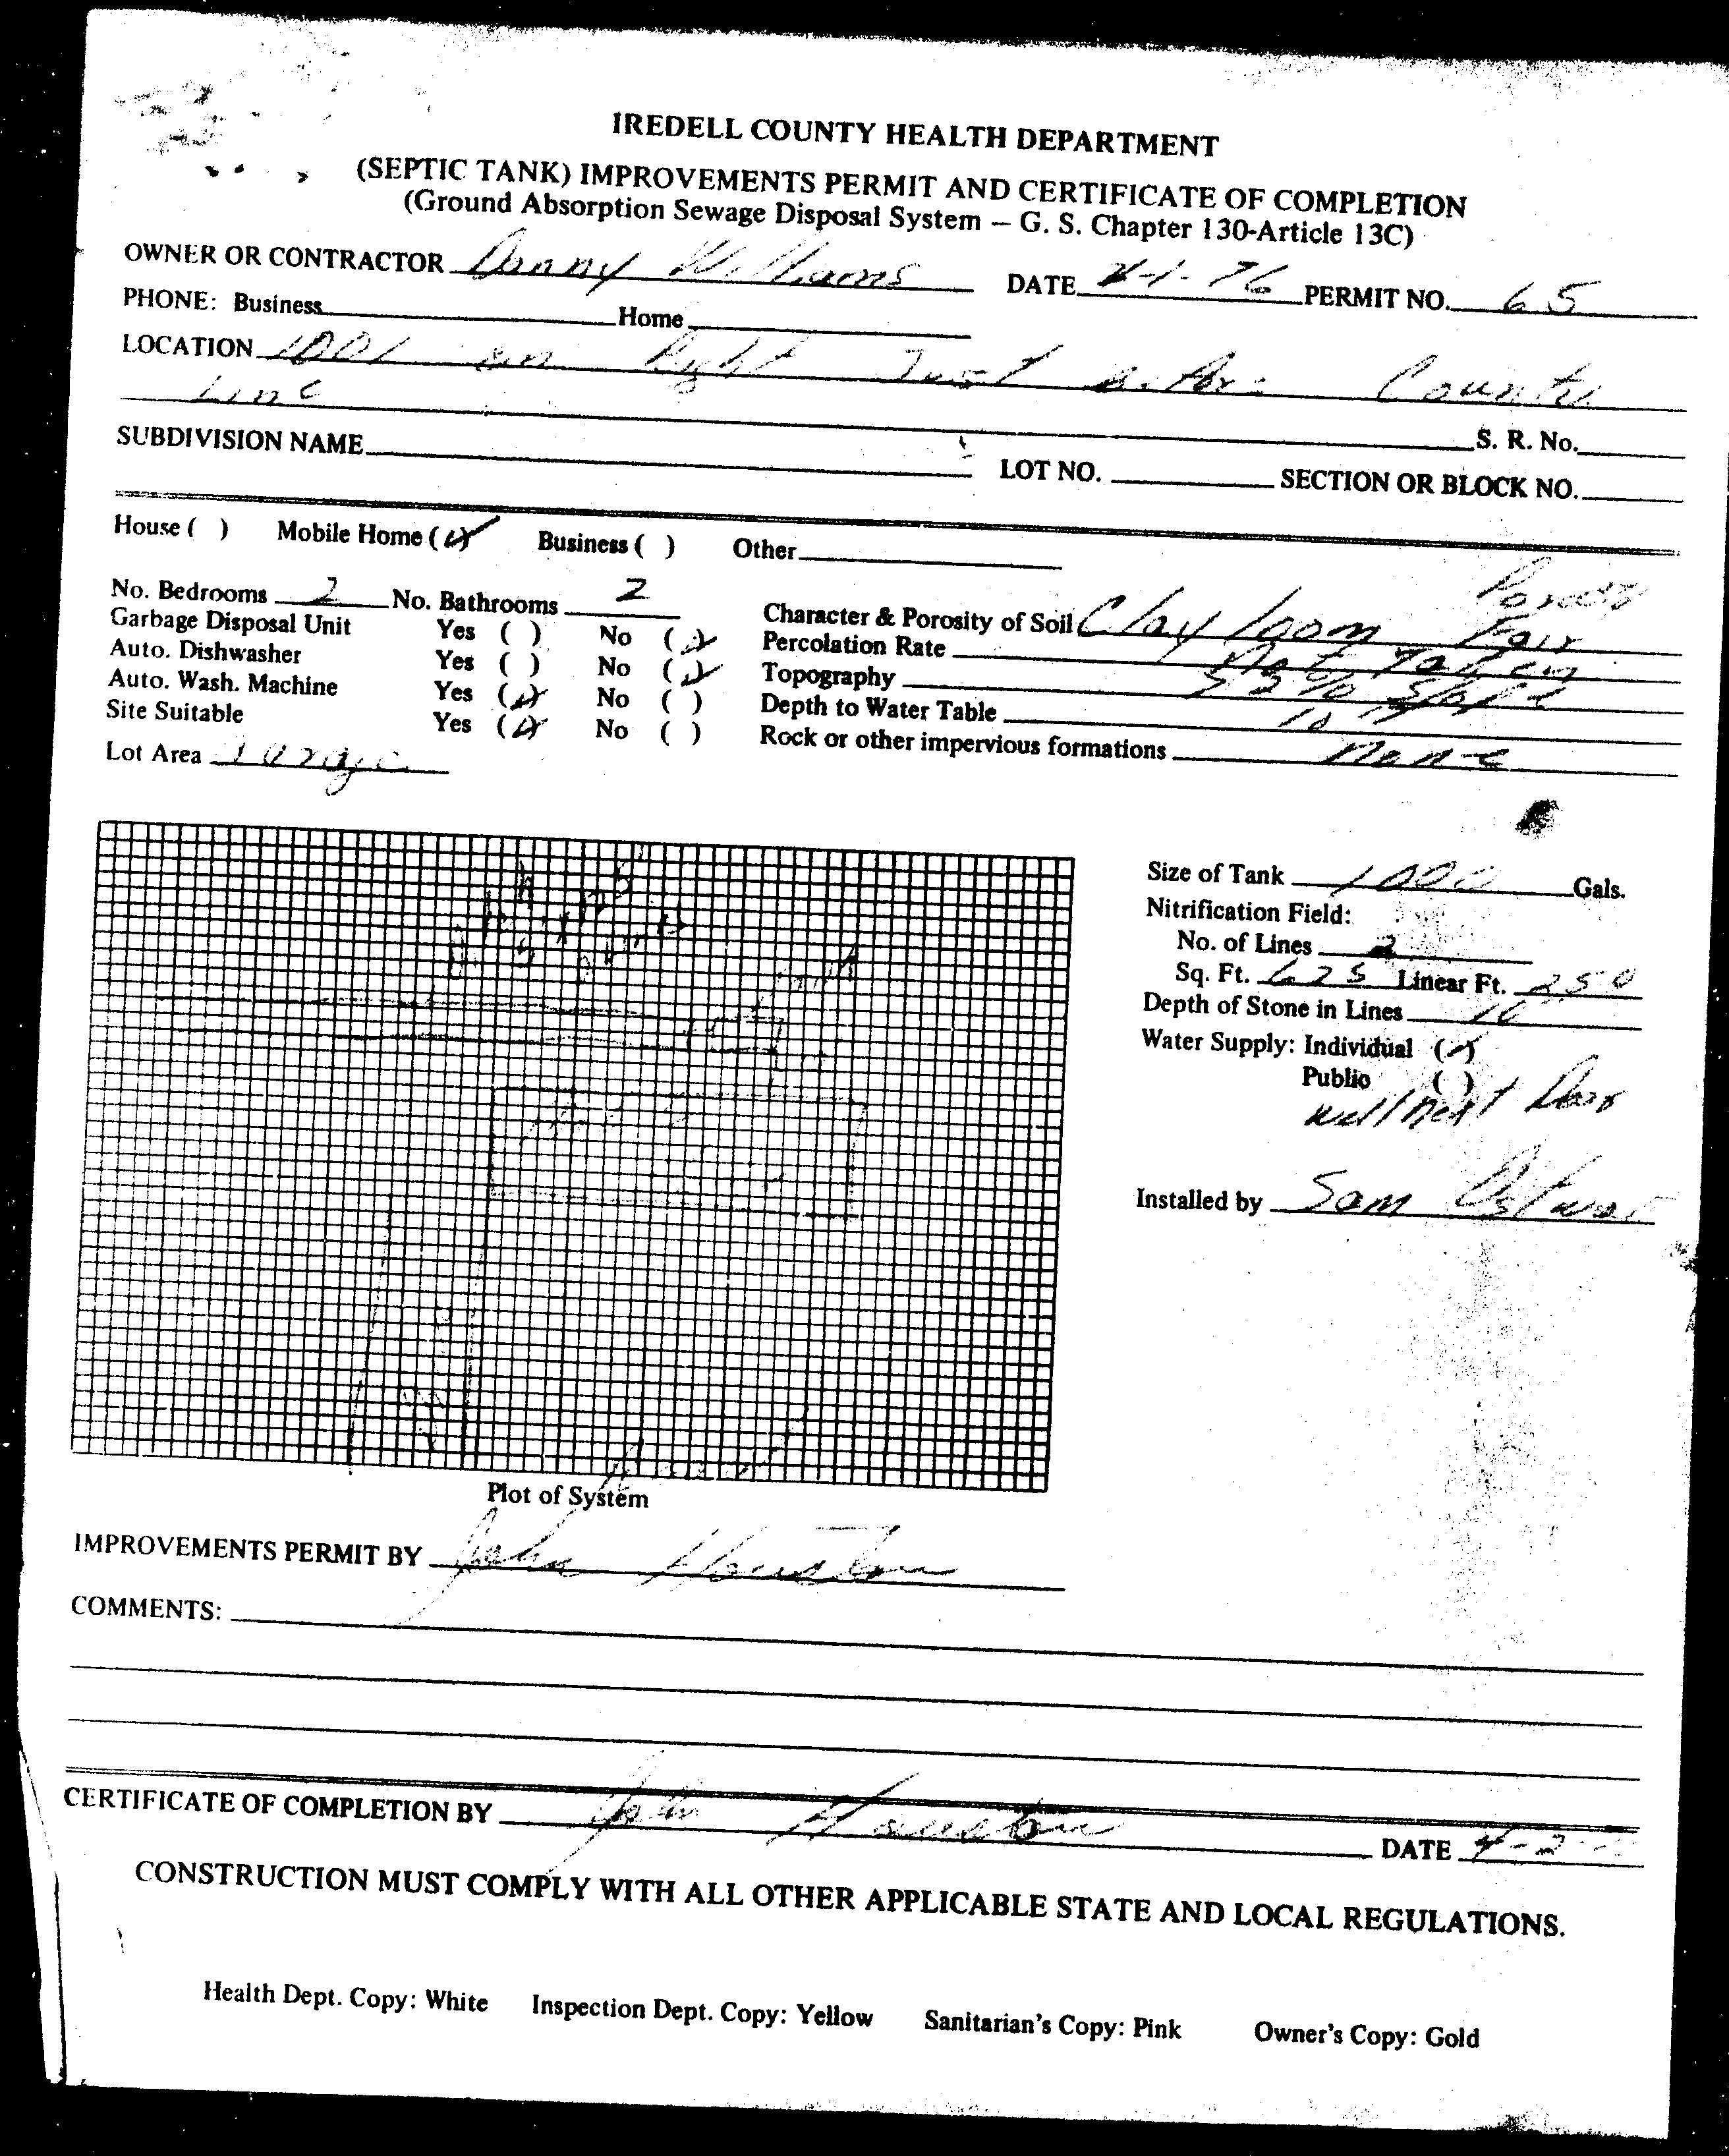 IREDELL COUNTY HEALTH DEPARTMENT
(SEPTIC TANK) IMPROVEMENTS PERMIT AND CERTIFICATE OF COMPLETION
(Ground Absorption Sewage Disposal System – G. S. Chapter 130-Article 13C)
OWNER OR CONTRACTOR Danny Williams DATE 4-1-76 PERMIT NO. 65
PHONE: Business Home
LOCATION 1001 on Right Just before County
Line
S. R. No.
SUBDIVISION NAME LOT NO. SECTION OR BLOCK NO.
House ( ) Mobile Home (✓) Business ( ) Other
No. Bedrooms 2 No. Bathrooms 2 Character & Porosity of Soil Clay loam Porosity Fair
Garbage Disposal Unit Yes ( ) No (✓) Percolation Rate Not Taken
Auto. Dishwasher Yes ( ) No (✓) Topography slope
Auto. Wash. Machine Yes (✓) No ( ) Depth to Water Table 10
Site Suitable Yes (✓) No ( ) Rock or other impervious formations None
Lot Area Large
Size of Tank 1000 Gals.
Nitrification Field:
No. of Lines 2
Sq. Ft. 625 Linear Ft. 250
Depth of Stone in Lines
Water Supply: Individual (✓)
Public ( )
well next Door
Installed by Sam
Plot of System
IMPROVEMENTS PERMIT BY John Houston
COMMENTS:
CERTIFICATE OF COMPLETION BY John Houston DATE 4-2-
CONSTRUCTION MUST COMPLY WITH ALL OTHER APPLICABLE STATE AND LOCAL REGULATIONS.
Health Dept. Copy: White Inspection Dept. Copy: Yellow Sanitarian's Copy: Pink Owner's Copy: Gold